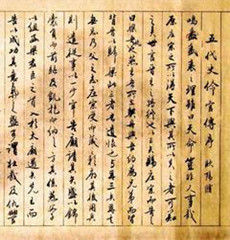 五代史伶官傳序 欧陽脩
嗚呼盛衰之理雖曰天命豈非人事哉
原庄宗之所以得天下與其所以失之者可知
之矣世言晉王之將終也以三矢賜庄宗而告之
曰梁吾仇也燕王吾所立契丹與吾約為兄弟而
皆背晉以歸梁此三者吾遺恨也與爾三矢爾其
無忘乃父之志庄宗受而藏之於廟其後用兵
則遣從事以一少牢告廟請其矢盛以錦
囊負而前驅及凱旋而納之方其係燕父子
以組函梁君臣之首入於太廟還矢先王而
告以成功其意氣之盛可謂壯哉及仇讎